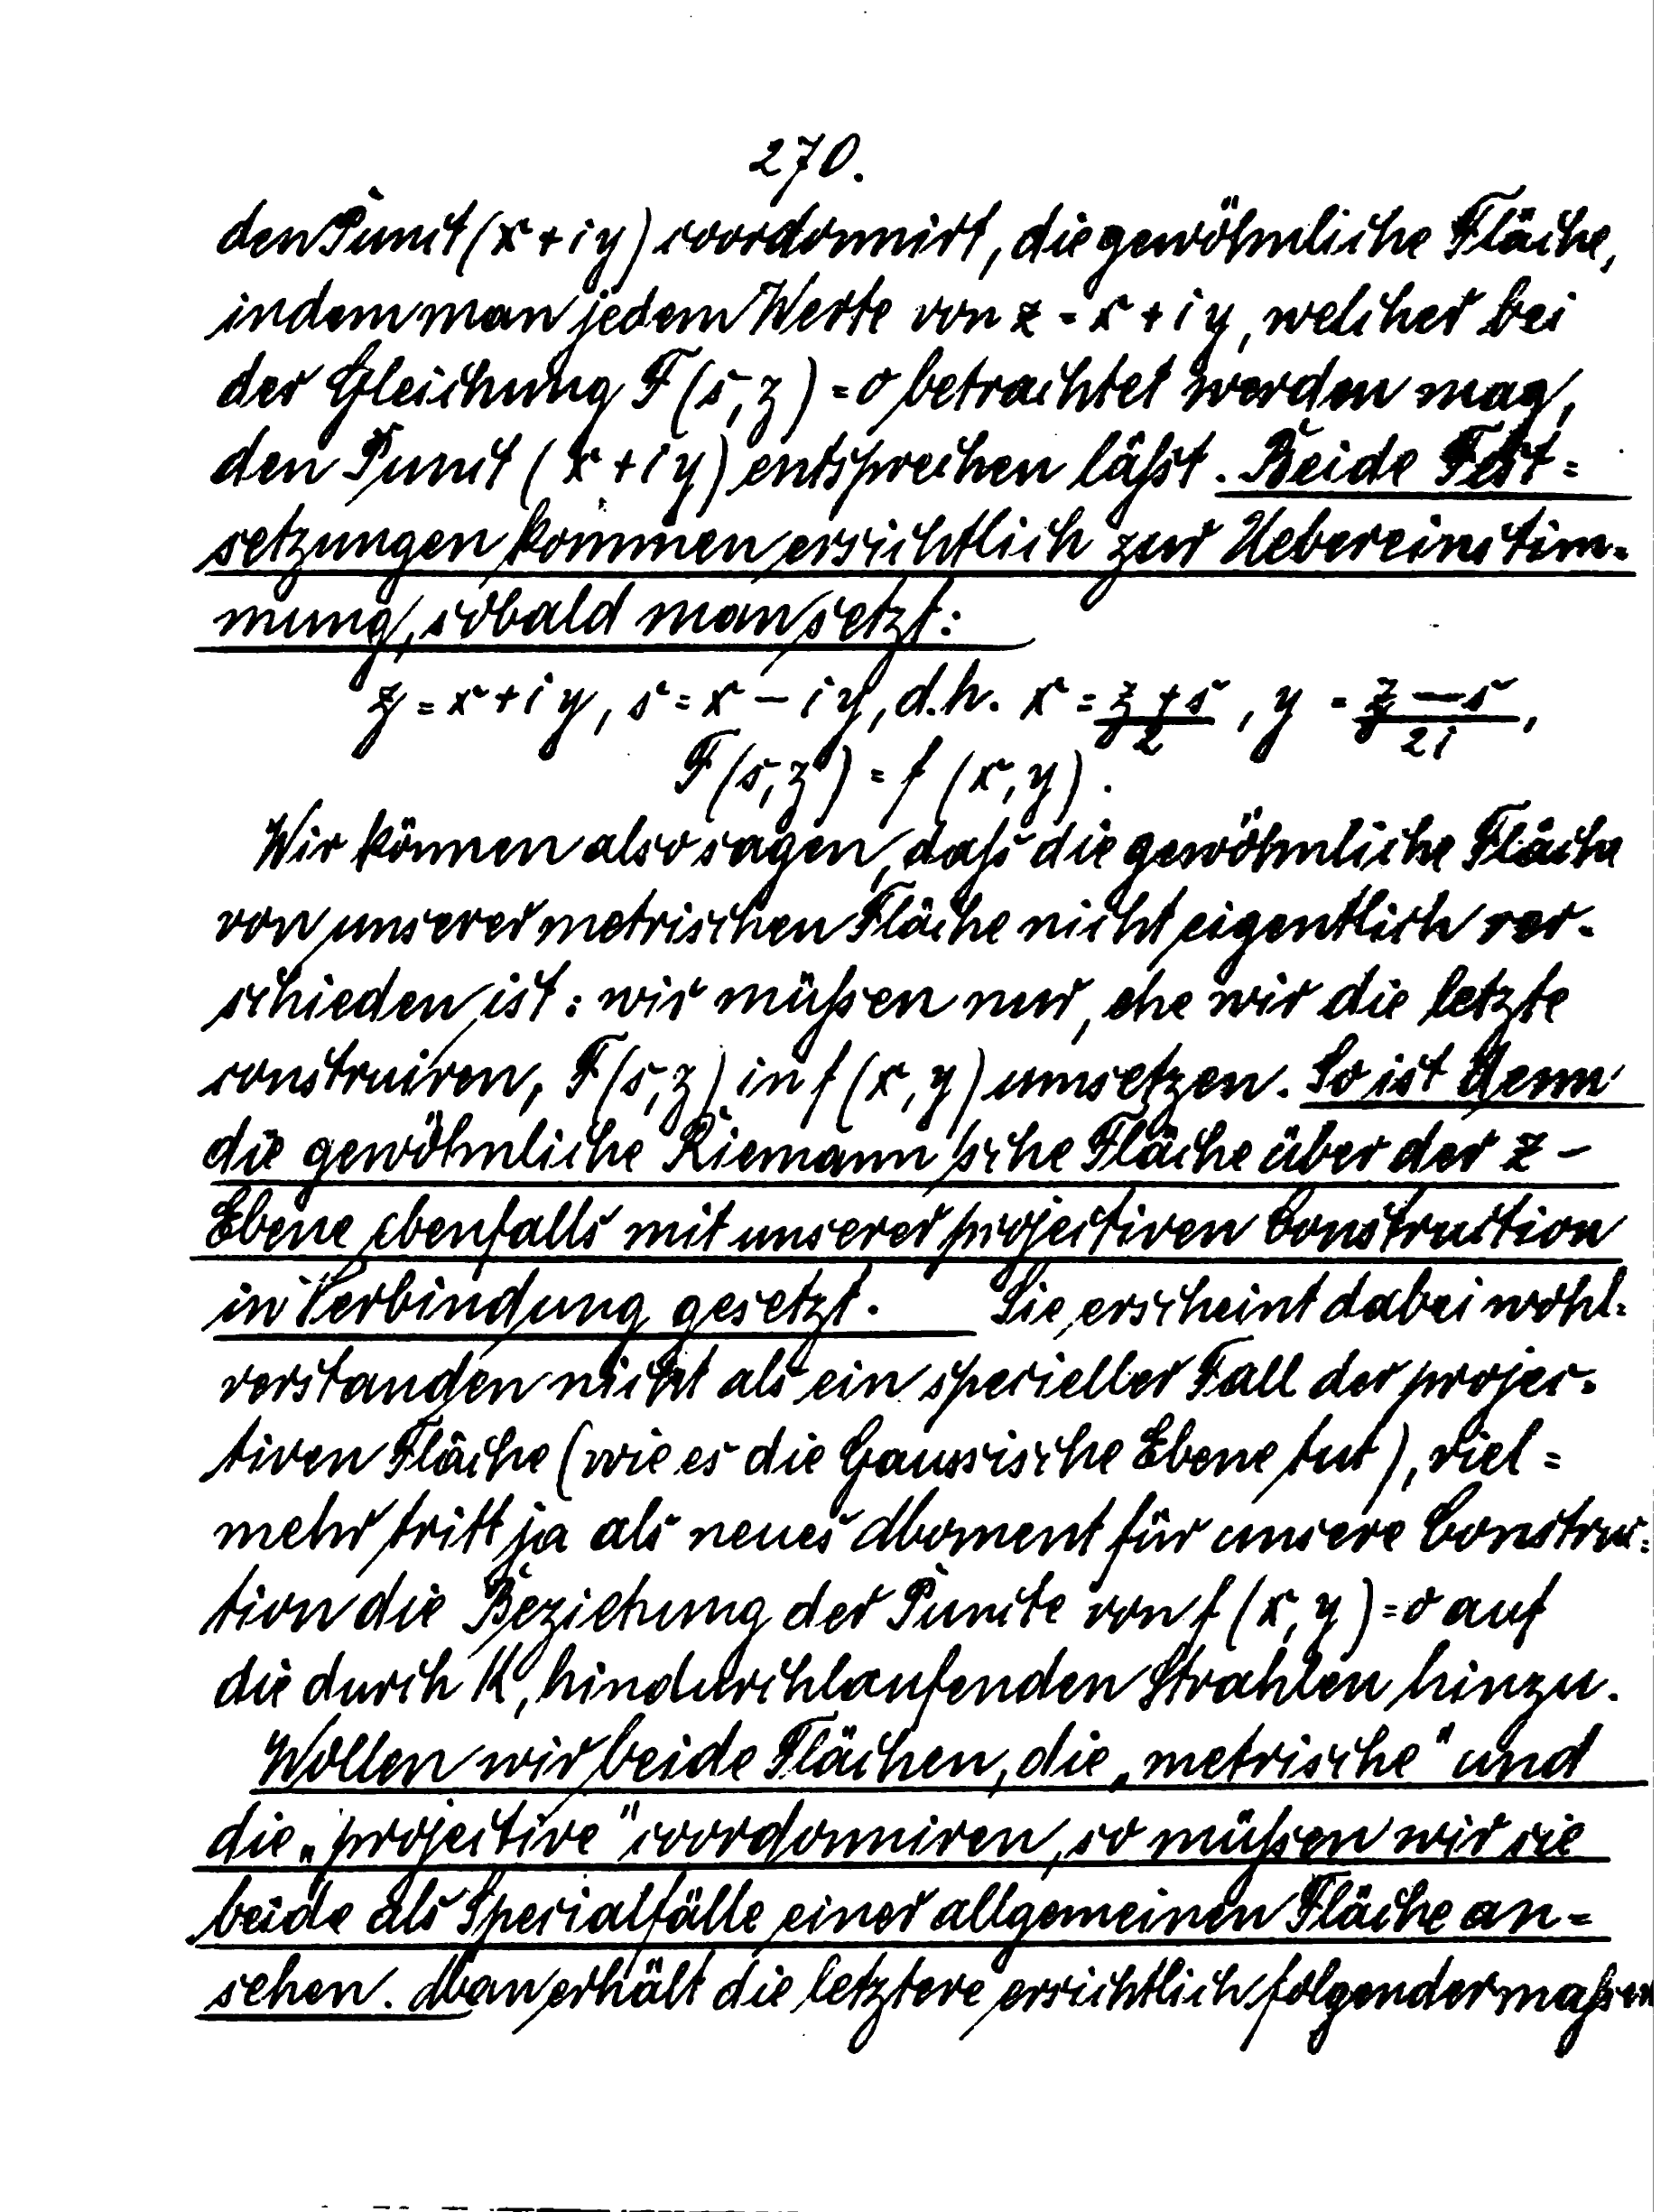 270.
den Punct (x + iy) coordonnirt, die gewöhnliche Fläche,
indem man jedem Werte von z = x + iy, welcher bei
der Gleichung F(s, z) = 0 betrachtet werden mag,
den Punct (x + iy) entsprechen läßt. Beide Fest=
setzungen kommen ersichtlich zur Uebereinstim-
mung, sobald man setzt:
z = x + iy, s = x – iy, d.h. x = (z + s)/2, y = (z – s)/2i,
F(s, z) = f(x, y).
Wir können also sagen, daß die gewöhnliche Fläche
von unserer metrischen Fläche nicht eigentlich ver-
schieden ist: wir müßen nur, ehe wir die letzte
construiren, F(s, z) in f(x, y) umsetzen. So ist denn
die gewöhnliche Riemann'sche Fläche über der z –
Ebene ebenfalls mit unserer projectiven Construction
in Verbindung gesetzt. Sie erscheint dabei wohl-
verstanden nicht als ein specieller Fall der projec-
tiven Fläche (wie es die Gaussische Ebene tut), viel=
mehr tritt ja als neues Moment für unsere Construc-
tion die Beziehung der Puncte von f(x, y) = 0 auf
die durch K, hindurchlaufenden Strahlen hinzu.
Wollen wir beide Flächen, die „metrische" und
die „projective" coordonniren, so müßen wir sie
beide als Specialfälle einer allgemeinen Fläche an-
sehen. Man erhält die letztere ersichtlich folgendermaßen